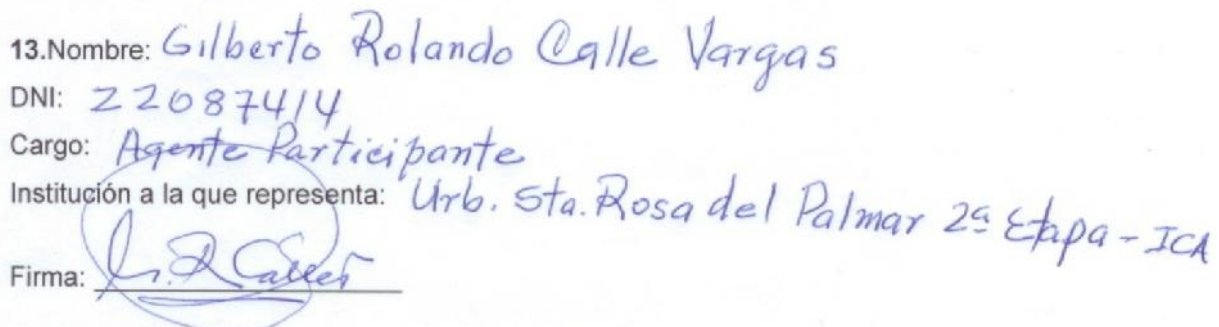 13.Nombre: Gilberto Rolando Calle Vargas
DNI: 22087414
Cargo: Agente Participante
Institución a la que representa: Urb. Sta. Rosa del Palmar 2ª Etapa - ICA
Firma: